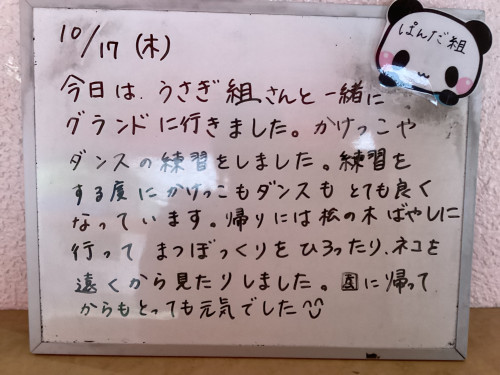 ぱんだ組
10/17 (木)
今日は、うさぎ組さんと一緒に
グランドに行きました。かけっこや
ダンスの練習をしました。練習を
する度にかけっこもダンスもとても良く
なっています。帰りには松の木ばやしに
行ってまつぼっくりをひろったり、ネコを
遠くから見たりしました。園に帰って
からもとっても元気でした